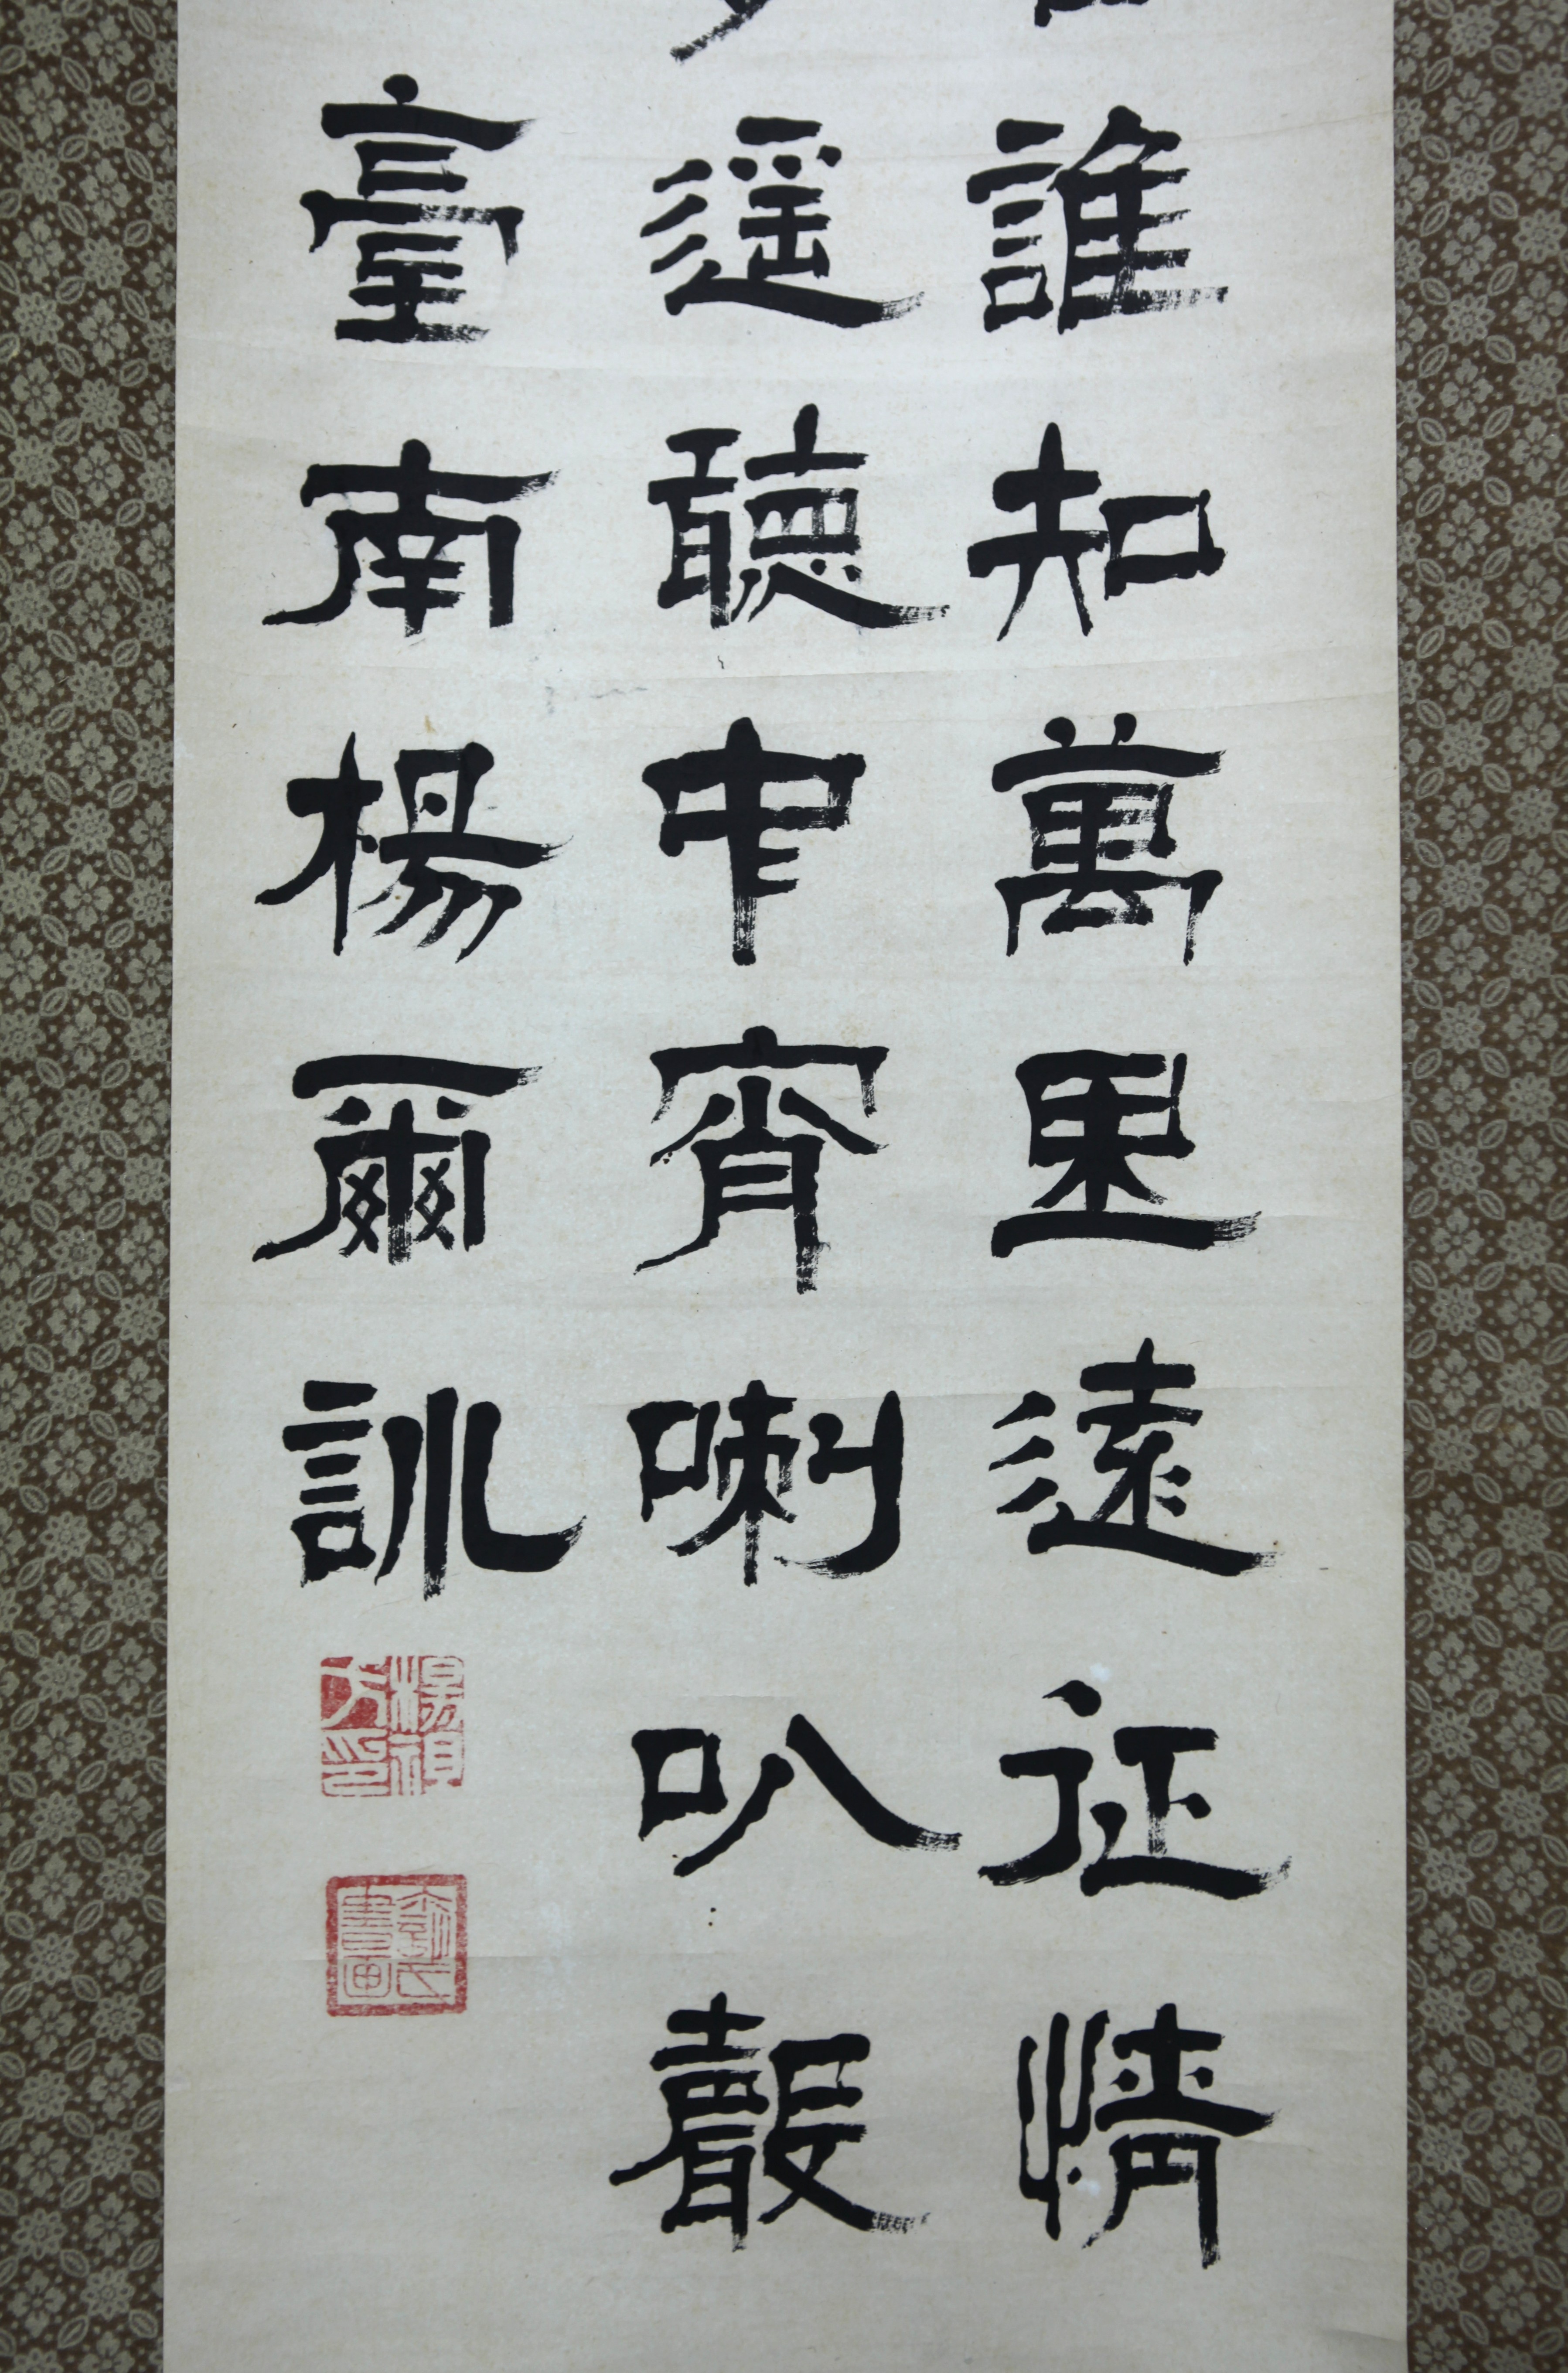 誰知萬里遠征情
遥聽中宵喇叭聲
臺南楊爾訓